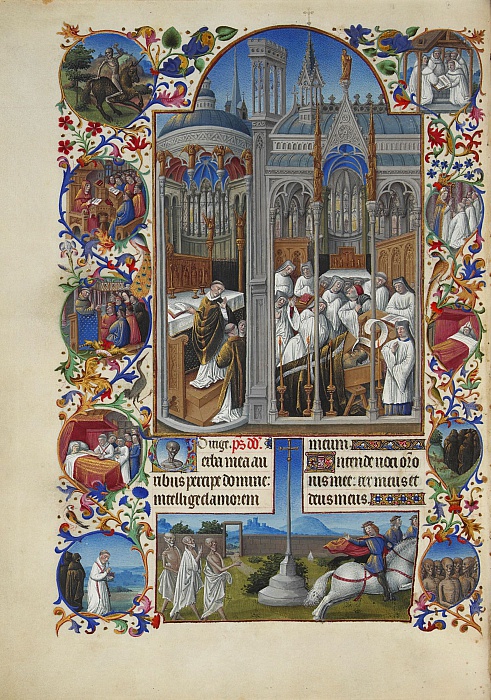 Dirige. ps. dd.
Verba mea au
ribus percipe domine:
intellige clamorem
meum.
Intende voci oro
nis mee: rex meus et
deus meus.